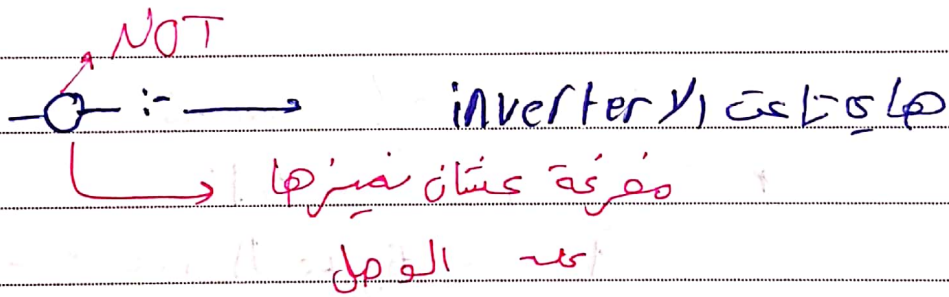 NOT
:- هاي تاعت الا inverter
مفرغة عشان نميزها
عن الوصل